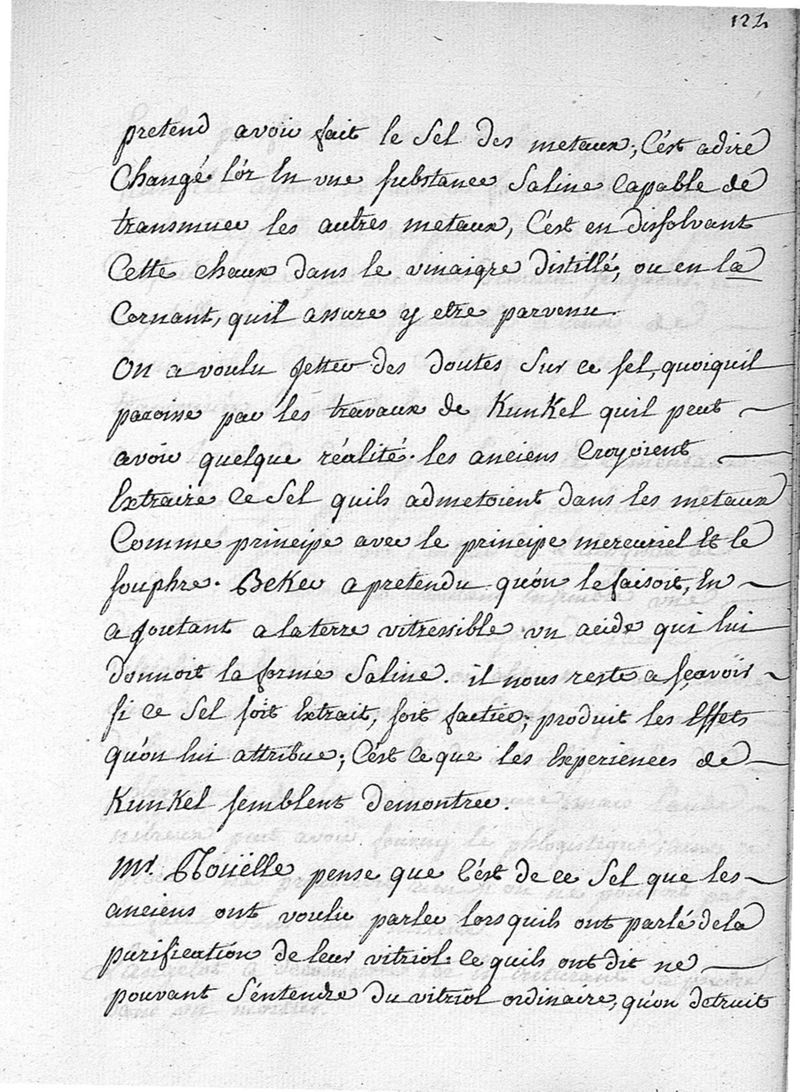 124
pretend avoir fait le Sel des metaux; C'est adire
Changé l'or En vne substance Saline Capable de
transmuer les autres metaux, C'est en dissolvant
Cette chaux dans le vinaigre distillé, ou en la
Cernant, quil assure y etre parvenu.
On a voulu Jetter des doutes Sur ce sel, quoiquil
paroisse par les travaux de Kunkel quil peut
avoir quelque réalité. les anciens Croyoient
Extraire Ce Sel quils admetoient dans les métaux
Comme principe avec le principe mercuriel Et le
souphre. BeKer a pretendu qu'on le faisoit, En
ajoutant a la terre vitressible vn acide qui lui
donnoit la forme Saline. il nous reste a sçavoir
si ce Sel soit Extrait, soit factice; produit les Effets
qu'on lui attribue; C'est Ce que les Experiences de
Kunkel semblent demontrer.
Mr. Roüelle pense que C'est de ce Sel que les
anciens ont voulu parler lorsquils ont parlé de la
purification de leur vitriol. Ce quils ont dit ne
pouvant S'entendre du vitriol ordinaire, qu'on detruit